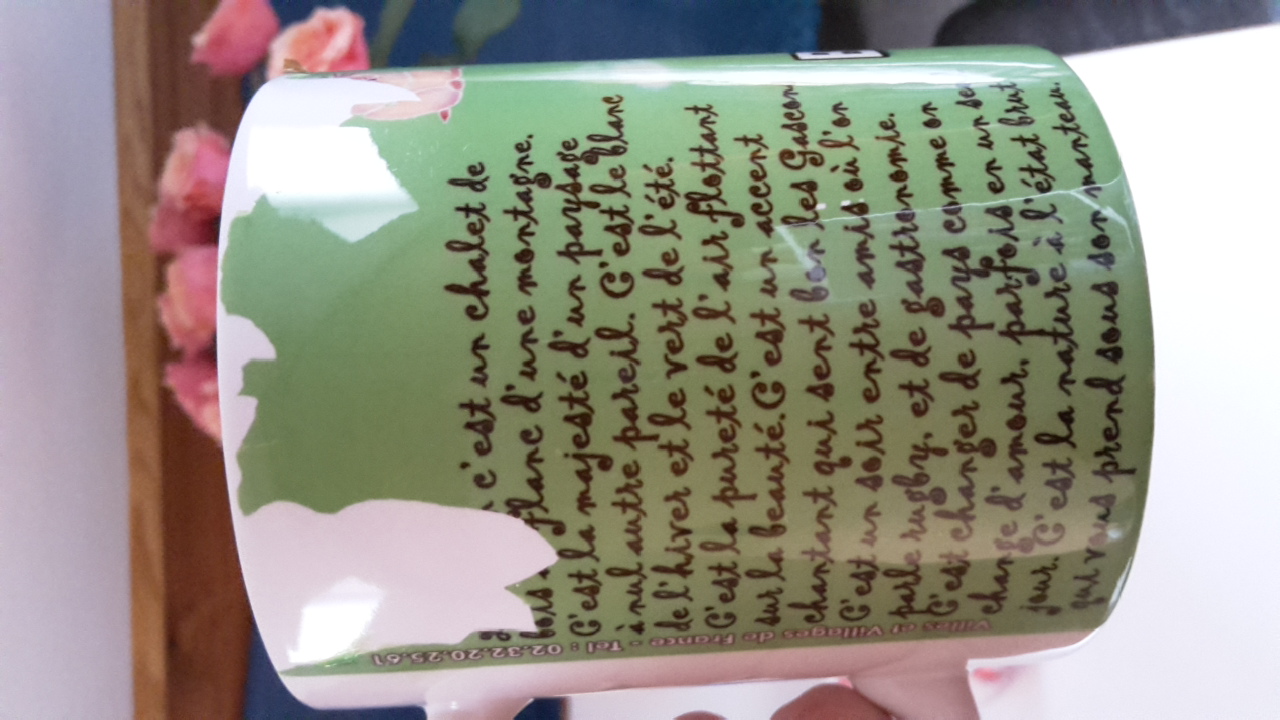 c'est un chalet de
bois flanc d'une montagne.
C'est la majesté d'un paysage
à nul autre pareil. C'est le blanc
de l'hiver et le vert de l'été.
C'est la pureté de l'air flottant
sur la beauté. C'est un accent
chantant qui sent bon les Gascon
C'est un soir entre amis où l'on
parle rugby, et de gastronomie.
C'est changer de pays comme on
change d'amour, parfois en un se
jour. C'est la nature à l'état brut
qui vous prend sous son manteau.
Villes et Villages de France - Tel : 02.32.20.25.61